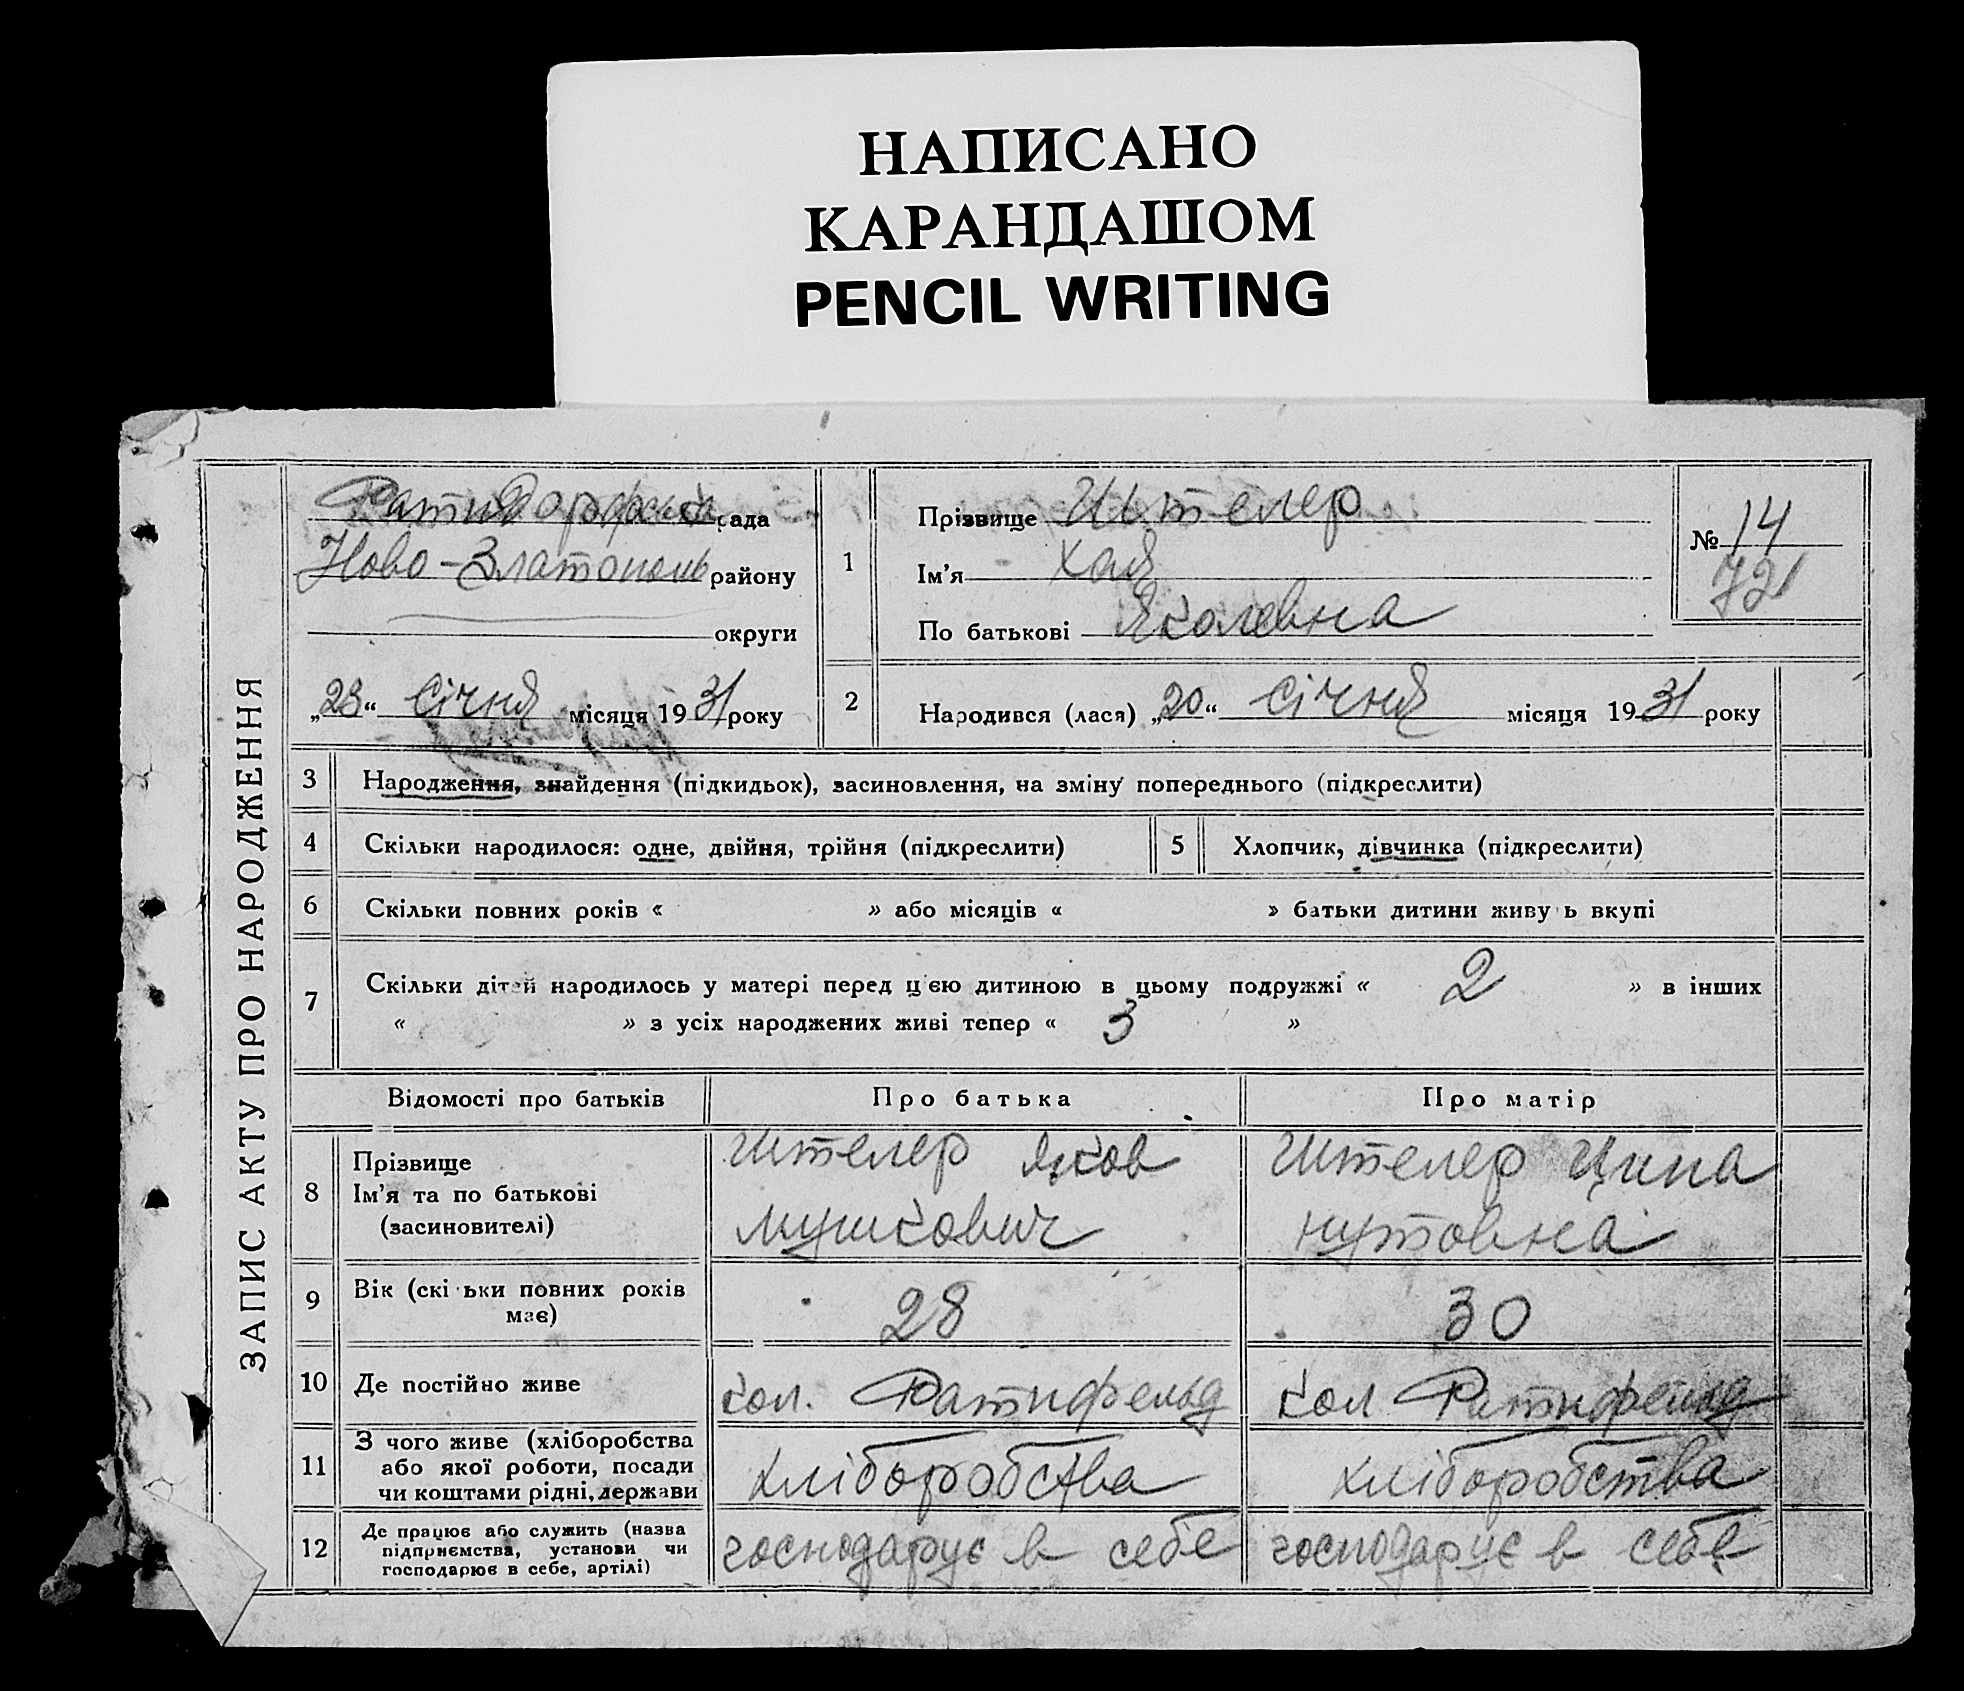 НАПИСАНО
КАРАНДАШОМ
PENCIL WRITING
ЗАПИС АКТУ ПРО НАРОДЖЕННЯ
рада
Ново-Златополь району
округи
„23“ Січня місяця 1931 року
1
Прізвище Штелер
Ім’я Хая
По батькові Яколевна
№ 14
72
2
Народився (лася) „20“ Січня місяця 1931 року
3 Народження, знайдення (підкидьок), засиновлення, на зміну попереднього (підкреслити)
4 Скільки народилося: одне, двійня, трійня (підкреслити) 5 Хлопчик, дівчинка (підкреслити)
6 Скільки повних років « » або місяців « » батьки дитини живу ь вкупі
7 Скільки дітей народилось у матері перед цією дитиною в цьому подружжі « 2 » в інших
« » з усіх народжених живі тепер « 3 »
Відомості про батьків Про батька Про матір
8 Прізвище
Ім’я та по батькові
(засиновителі)
Штелер Яков
Мушкович
Штелер Ципа
Нутовна
9 Вік (скі ьки повних років
має)
28 30
10 Де постійно живе кол. Ратнфельд кол Ратнфельд
11 З чого живе (хліборобства
або якої роботи, посади
чи коштами рідні, держави
хліборобства хліборобства
12 Де працює або служить (назва
підприємства, установи чи
господарює в себе, артілі)
господарує в себе господарує в себе